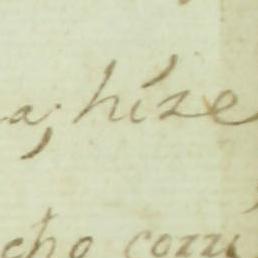 a; híze
cho corri